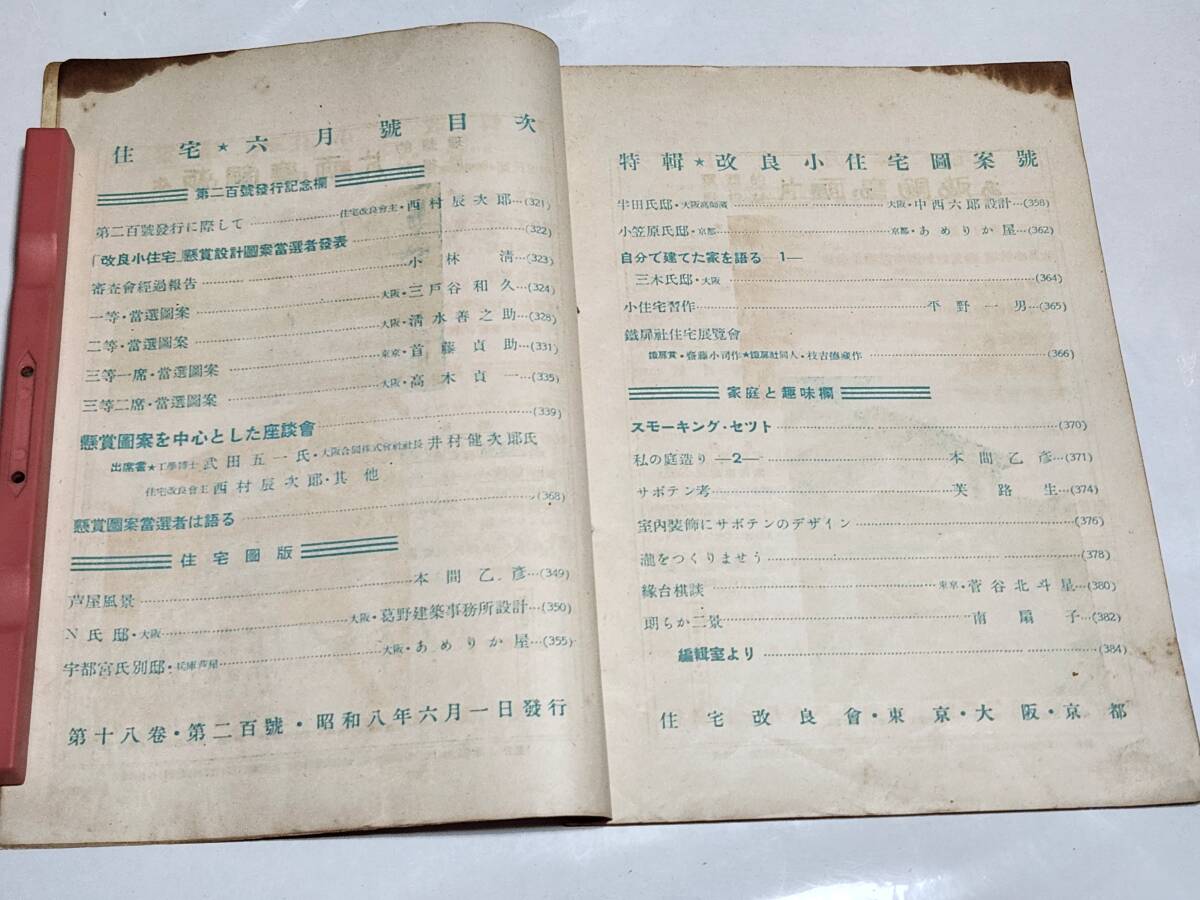 住宅★六月號目次
第二百號發行記念欄
第二百號發行に際して……住宅改良會主・西村辰次郎…(321)
「改良小住宅」懸賞設計圖案當選者發表……(322)
審査會經過報告……小林清…(323)
一等・當選圖案……大阪・三戸谷和久…(324)
二等・當選圖案……大阪・清水善之助…(328)
三等一席・當選圖案……東京・首藤貞助…(331)
三等二席・當選圖案……大阪・高木貞一…(335)
懸賞圖案を中心とした座談會……(339)
出席者★工學博士 武田五一氏・大阪合同株式會社社長 井村健次郎氏
住宅改良會主 西村辰次郎・其他
懸賞圖案當選者は語る……(368)
住宅圖版
芦屋風景……本間乙彦…(349)
N氏邸・大阪……大阪・葛野建築事務所設計…(350)
宇都宮氏別邸・兵庫芦屋……大阪・あめりか屋…(355)
第十八卷・第二百號・昭和八年六月一日發行
特輯★改良小住宅圖案號
半田氏邸・大阪高師濱……大阪・中西六郎設計…(358)
小笠原氏邸・京都……京都・あめりか屋…(362)
自分で建てた家を語る —1—
三木氏邸・大阪……(364)
小住宅習作……平野一男…(365)
鐵扉社住宅展覽會
鐵扉賞・齋藤小司作★鐵扉社同人・枝吉徳藏作……(366)
家庭と趣味欄
スモーキング・セツト……(370)
私の庭造り —2—……本間乙彦…(371)
サボテン考……芙路生…(374)
室内裝飾にサボテンのデザイン……(376)
瀧をつくりませう……(378)
緣台棋談……東京・菅谷北斗星…(380)
朗らか二景……南扇子…(382)
編輯室より……(384)
住宅改良會・東京・大阪・京都